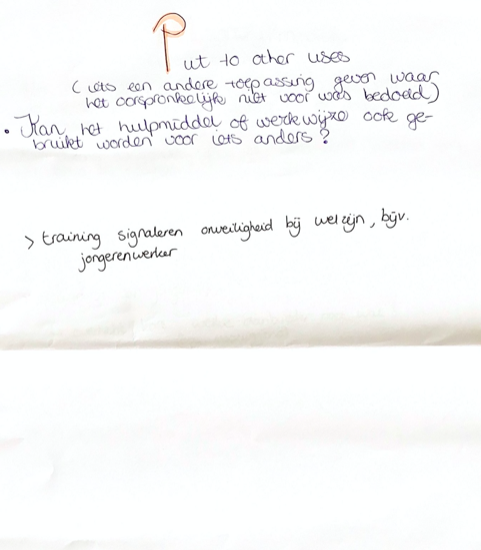 Put to other uses
(iets een andere toepassing geven waar
het oorspronkelijk niet voor was bedoeld)
• Kan het hulpmiddel of werkwijze ook ge-
bruikt worden voor iets anders?
> training signaleren onveiligheid bij welzijn, bijv.
jongerenwerker